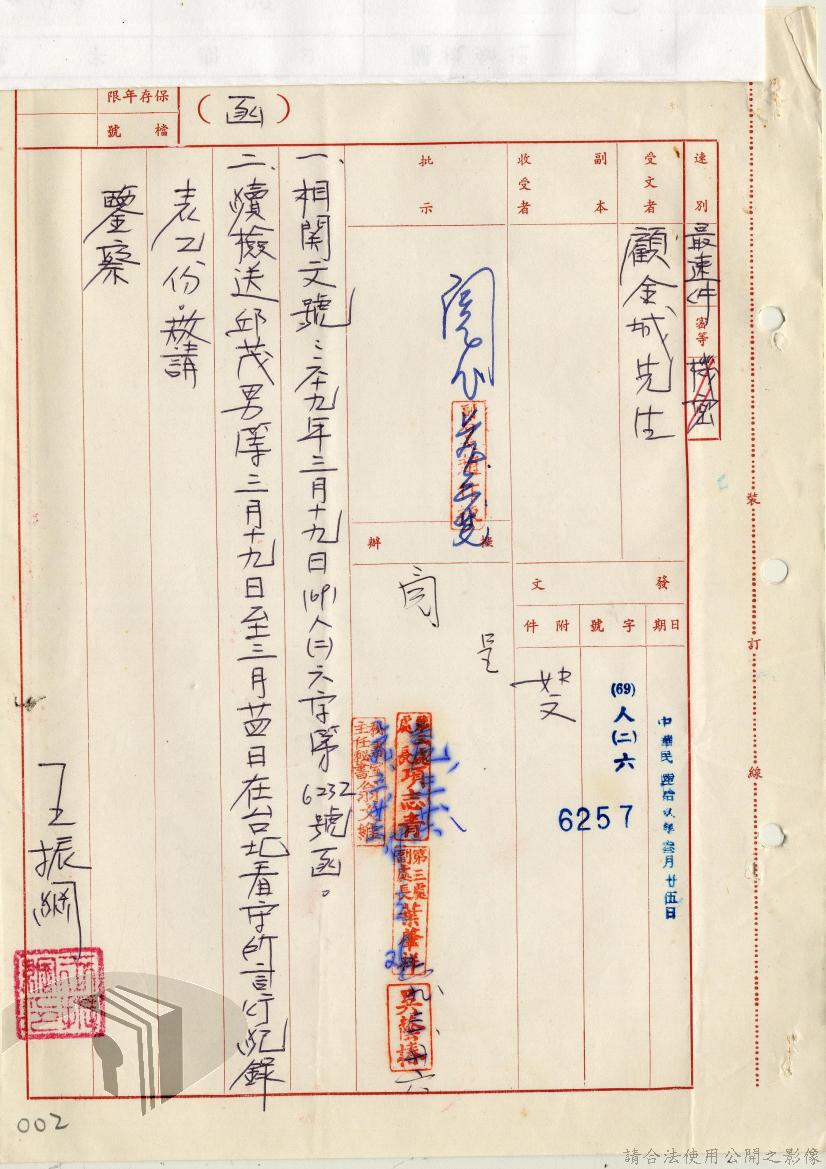 保存年限
檔號
（函）
速別
最速件
密等
機密
受文者
顧金城先生
副本
收受者
批示
擬辦
閱
呈
發文
日期
中華民國陸拾玖年叁月廿伍日
字號
(69)人(二)六
6257
附件
如文
一、相關文號：六十九年三月十九日(69)人(二)六字第6232號函。
二、續檢送邱茂男等三月十九日至三月廿四日在台北看守所言行紀錄
表乙份。敬請
鑒察
王振綱
第三處
處長項志青
第三處
副處長葉肇祥
主任秘書翁文維
吳蔭謀
裝
訂
線
002
請合法使用公開之影像